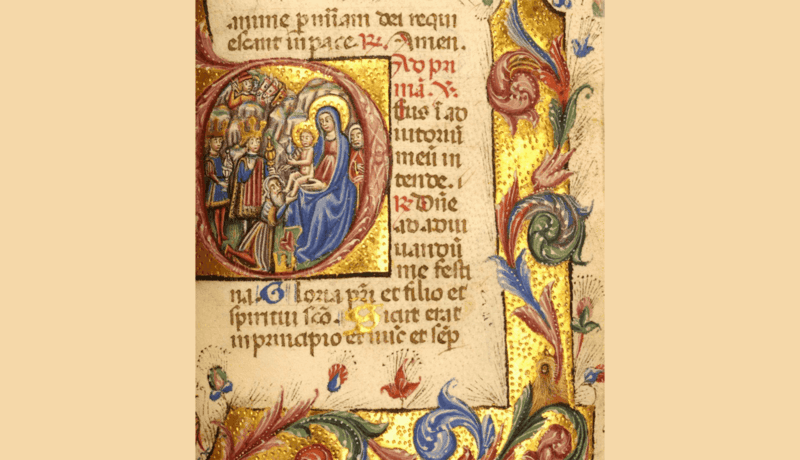 anime p mīam dei requi
escant in pace. R. Amen.
Ad pri
mā. V.
Deus ī ad
iutoriū
meū in
tende.
R. Dn̄e
ad adiu
uandū
me festi
na. Gloria pr̄i et filio et
spiritui sc̄o. Sicut erat
in principio et nūc et sēp